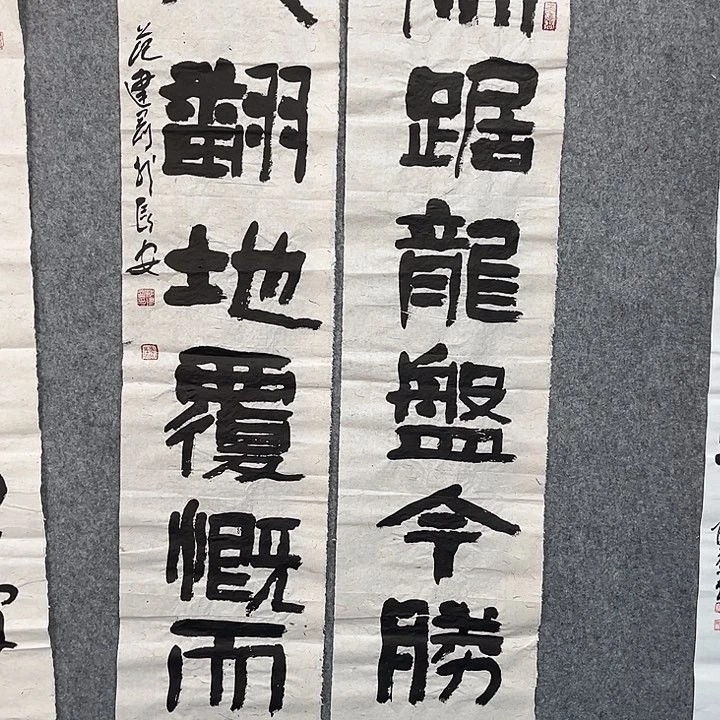 踞龍盤今勝
翻地覆慨而
范建於長安